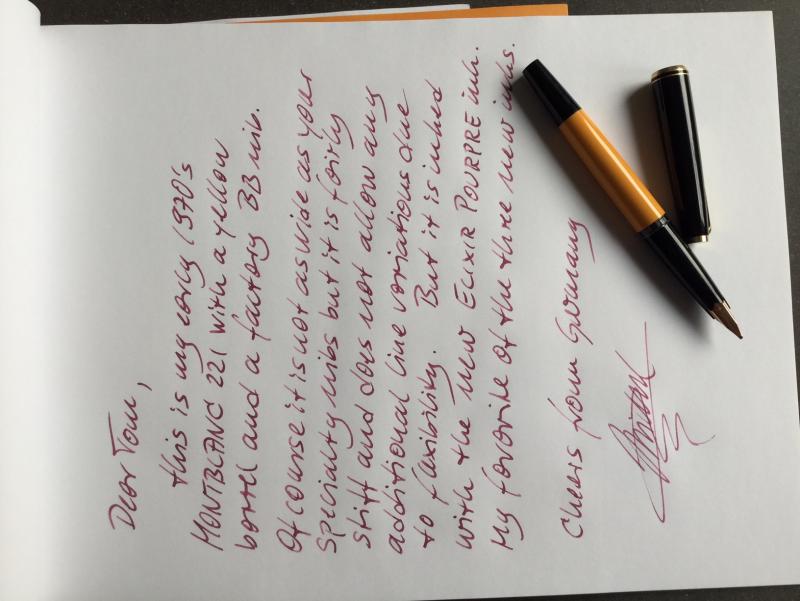 Dear Tom,
this is my early 1970's
MONTBLANC 221 with a yellow
barrel and a factory BB nib.
Of course it is not as wide as your
specialty nibs but it is fairly
stiff and does not allow any
additional line variations due
to flexibility. But it is inked
with the new ELIXIR POURPRE ink.
My favorite of the three new inks.
Cheers from Germany